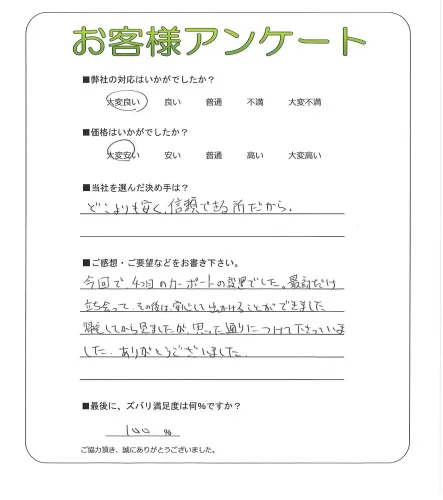 お客様アンケート
■弊社の対応はいかがでしたか？
大変良い 良い 普通 不満 大変不満
■価格はいかがでしたか？
大変安い 安い 普通 高い 大変高い
■当社を選んだ決め手は？
どこよりも安く、信頼できる所だから。
■ご感想・ご要望などをお書き下さい。
今回で、4つ目のカーポートの設置でした。最初だけ
立ち会って、その後は、安心して出かけることができました
帰宅してから見ましたが、思った通りにつけて下さっていま
した。ありがとうございました。
■最後に、ズバリ満足度は何％ですか？
100 %
ご協力頂き、誠にありがとうございました。